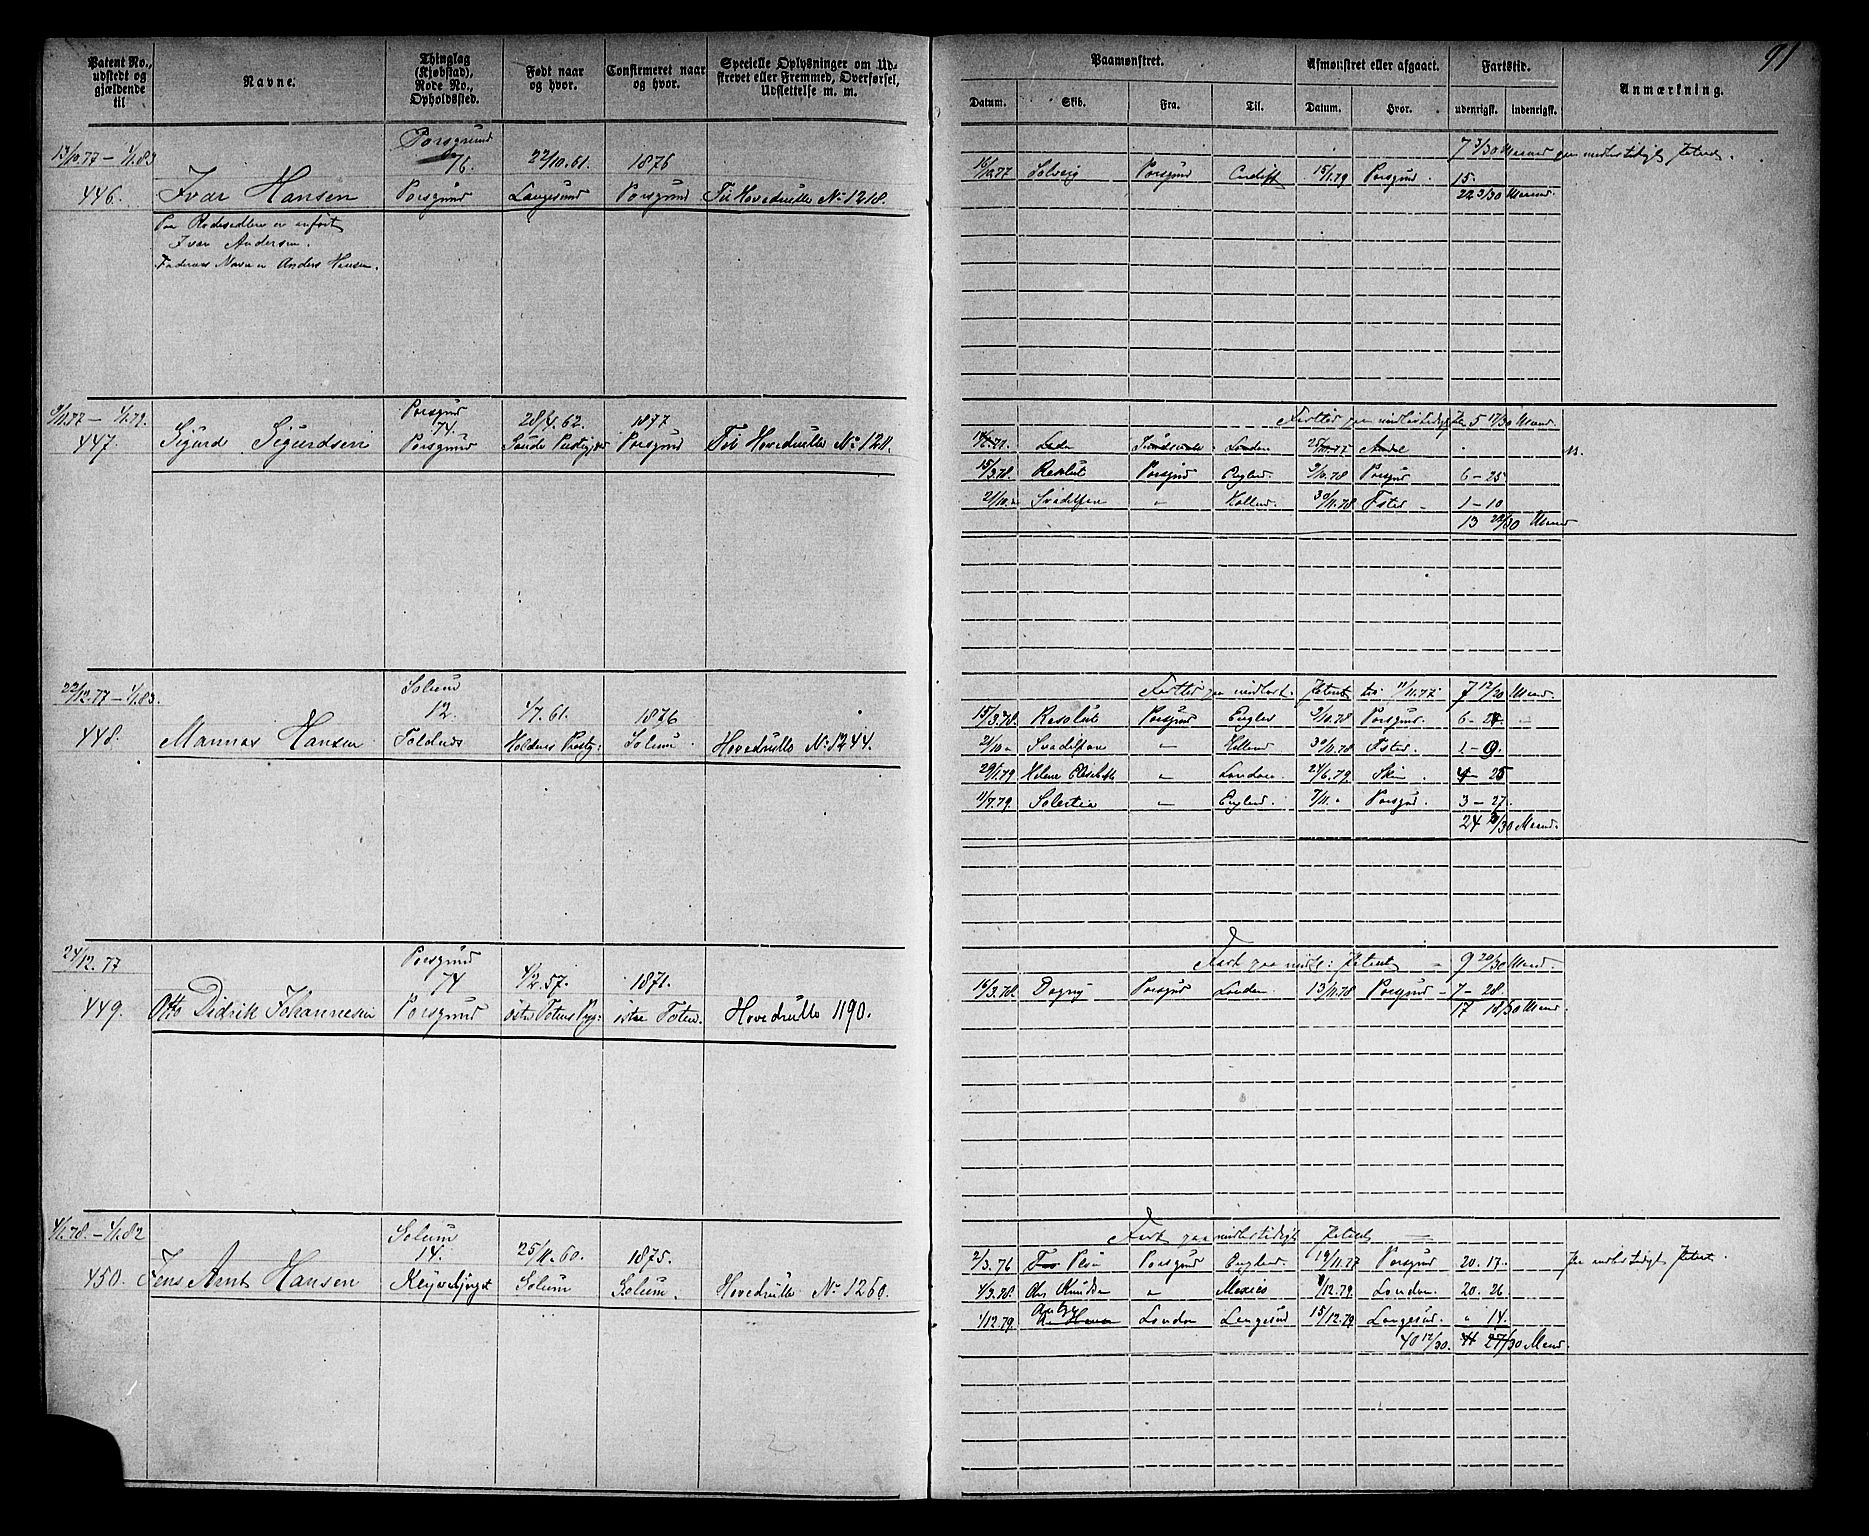 91
Patent No., udstedt og gjældende til
Navne.
Thinglag (Kjøbstad), Rode No., Opholdssted.
Født naar og hvor.
Confirmeret naar og hvor.
Specielle Oplysninger om Udskrevet eller Fremmed, Overførsel, Udslettelse m. m.
Paamønstret.
Afmønstret eller afgaaet.
Fartstid.
Anmærkning.
Datum. Skib. Fra. Til. Datum. Hvor. udenrigsk. indenrigsk.
13/10.77 – 1/1.83 Porsgrund 76. 22/10.61. 1876
446. Ivar Hansen Porsgrund Langesund Porsgrund Til Hovedrulle No 1218.
Paa Rodesedlen er anført
Ivar Andersen.
Faderens Navn er Anders Hansen.
7 3/30 Maaned paa midlertidigt Patent.
16/10.77 Solveig Porsgrund Cardiff 15/1.79 Porsgrund. 15.
22 3/30 Maaned
9/11.77 – 1/1.79. Porsgrund 74. 28/4.62. 1877
447. Sigurd Sigurdsen Porsgrund Porsgrund Til Hovedrulle No 1211.
5 17/30 Maaned
Leda London
15/3.78. Resolut Porsgrund England 9/10.78 Porsgrund 6 – 25
21/10. Svadilfare " Holland. 30/11.78 Fsted – 1 – 10
13 22/30 Maaned
22/12.77 – 1/1.83. Solum 12. 1/7.61. 1876
448. Mannas Hansen Toldnes Holdens Prestg: Solum. Hovedrulle No 1244.
Patent 11/11.77. 7 17/30 Maaned.
15/3.78. Resolut Porsgrund England 9/10.78 Porsgrund. 6 –
21/10 Svadilfare " Holland 30/11.78 Fsted. 1 – 9.
29/1.79 Helene Elisabeth " London. 24/6.79 Skien 4 – 25
11/7.79. Solertia " England. 7/11. Porsgrund. 3 – 27.
24 /30 Maaned.
24/12.77 Porsgrund 74 4/2.57. 1871.
449. Otto Didrik Johannesen Porsgrund østre Totens Prg: østre Toten. Hovedrulle 1190.
Fart paa midl: Patent – 9 20/30 Maaned.
16/3.78. Dagny Porsgrund London. 13/11.78 Porsgrund – 7 – 28
17 18/30 Maaned.
4/1.78. – 1/1.82 Solum 14. 25/11.60. 1875.
450. Jens Arnt Hansen Solum Solum. Hovedrulle No 1260.
Fart paa midlertidigt Patent
2/3.76 Porsgrund England 19/11.77 Porsgrund 20. 17. Paa midlertidigt Patent.
4/3.78. Chr. Knudsen " Mexico 1/12.79. London. 20. 26
1/12.79. London Langesund 15/12.79 Langesund. " 14.
40 12/30. 27/30 Maaned.